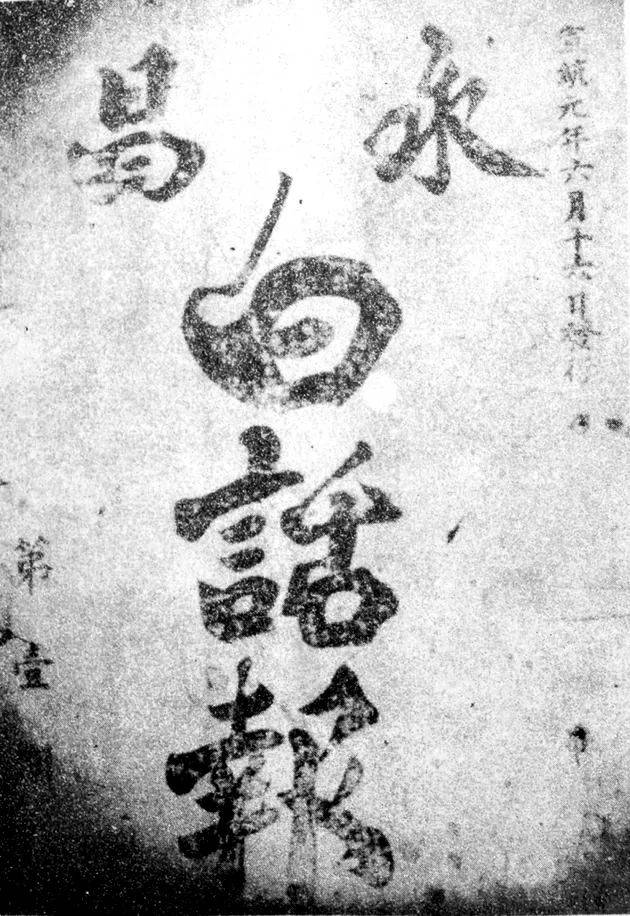 宣統元年六月十六日發行
永昌
白話報
第
壹